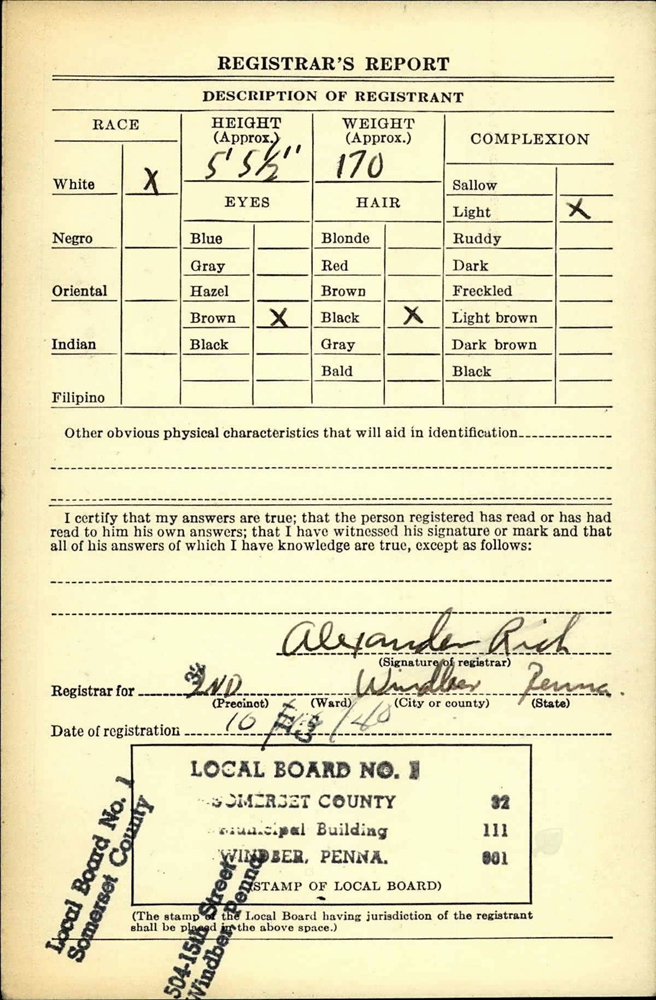 REGISTRAR'S REPORT
DESCRIPTION OF REGISTRANT
RACE
HEIGHT (Approx.) WEIGHT (Approx.) COMPLEXION
5' 5½" 170
White X Sallow
EYES HAIR Light X
Negro Blue Blonde Ruddy
Gray Red Dark
Oriental Hazel Brown Freckled
Brown X Black X Light brown
Indian Black Gray Dark brown
Bald Black
Filipino
Other obvious physical characteristics that will aid in identification
I certify that my answers are true; that the person registered has read or has had
read to him his own answers; that I have witnessed his signature or mark and that
all of his answers of which I have knowledge are true, except as follows:
Alexander Rich
(Signature of registrar)
Registrar for 2ND Windber Penna.
(Precinct) (Ward) (City or county) (State)
Date of registration 10 / / 40
LOCAL BOARD NO. 1
SOMERSET COUNTY 32
Municipal Building 111
WINDBER, PENNA. 001
(STAMP OF LOCAL BOARD)
(The stamp of the Local Board having jurisdiction of the registrant
shall be placed in the above space.)
Local Board No. 1
Somerset County
504-15th Street
Windber, Penna